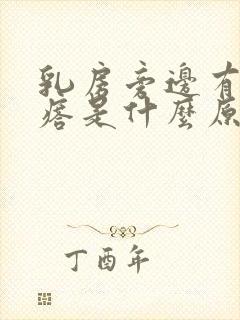 乳房旁邊有
痞是什麼原
丁酉年